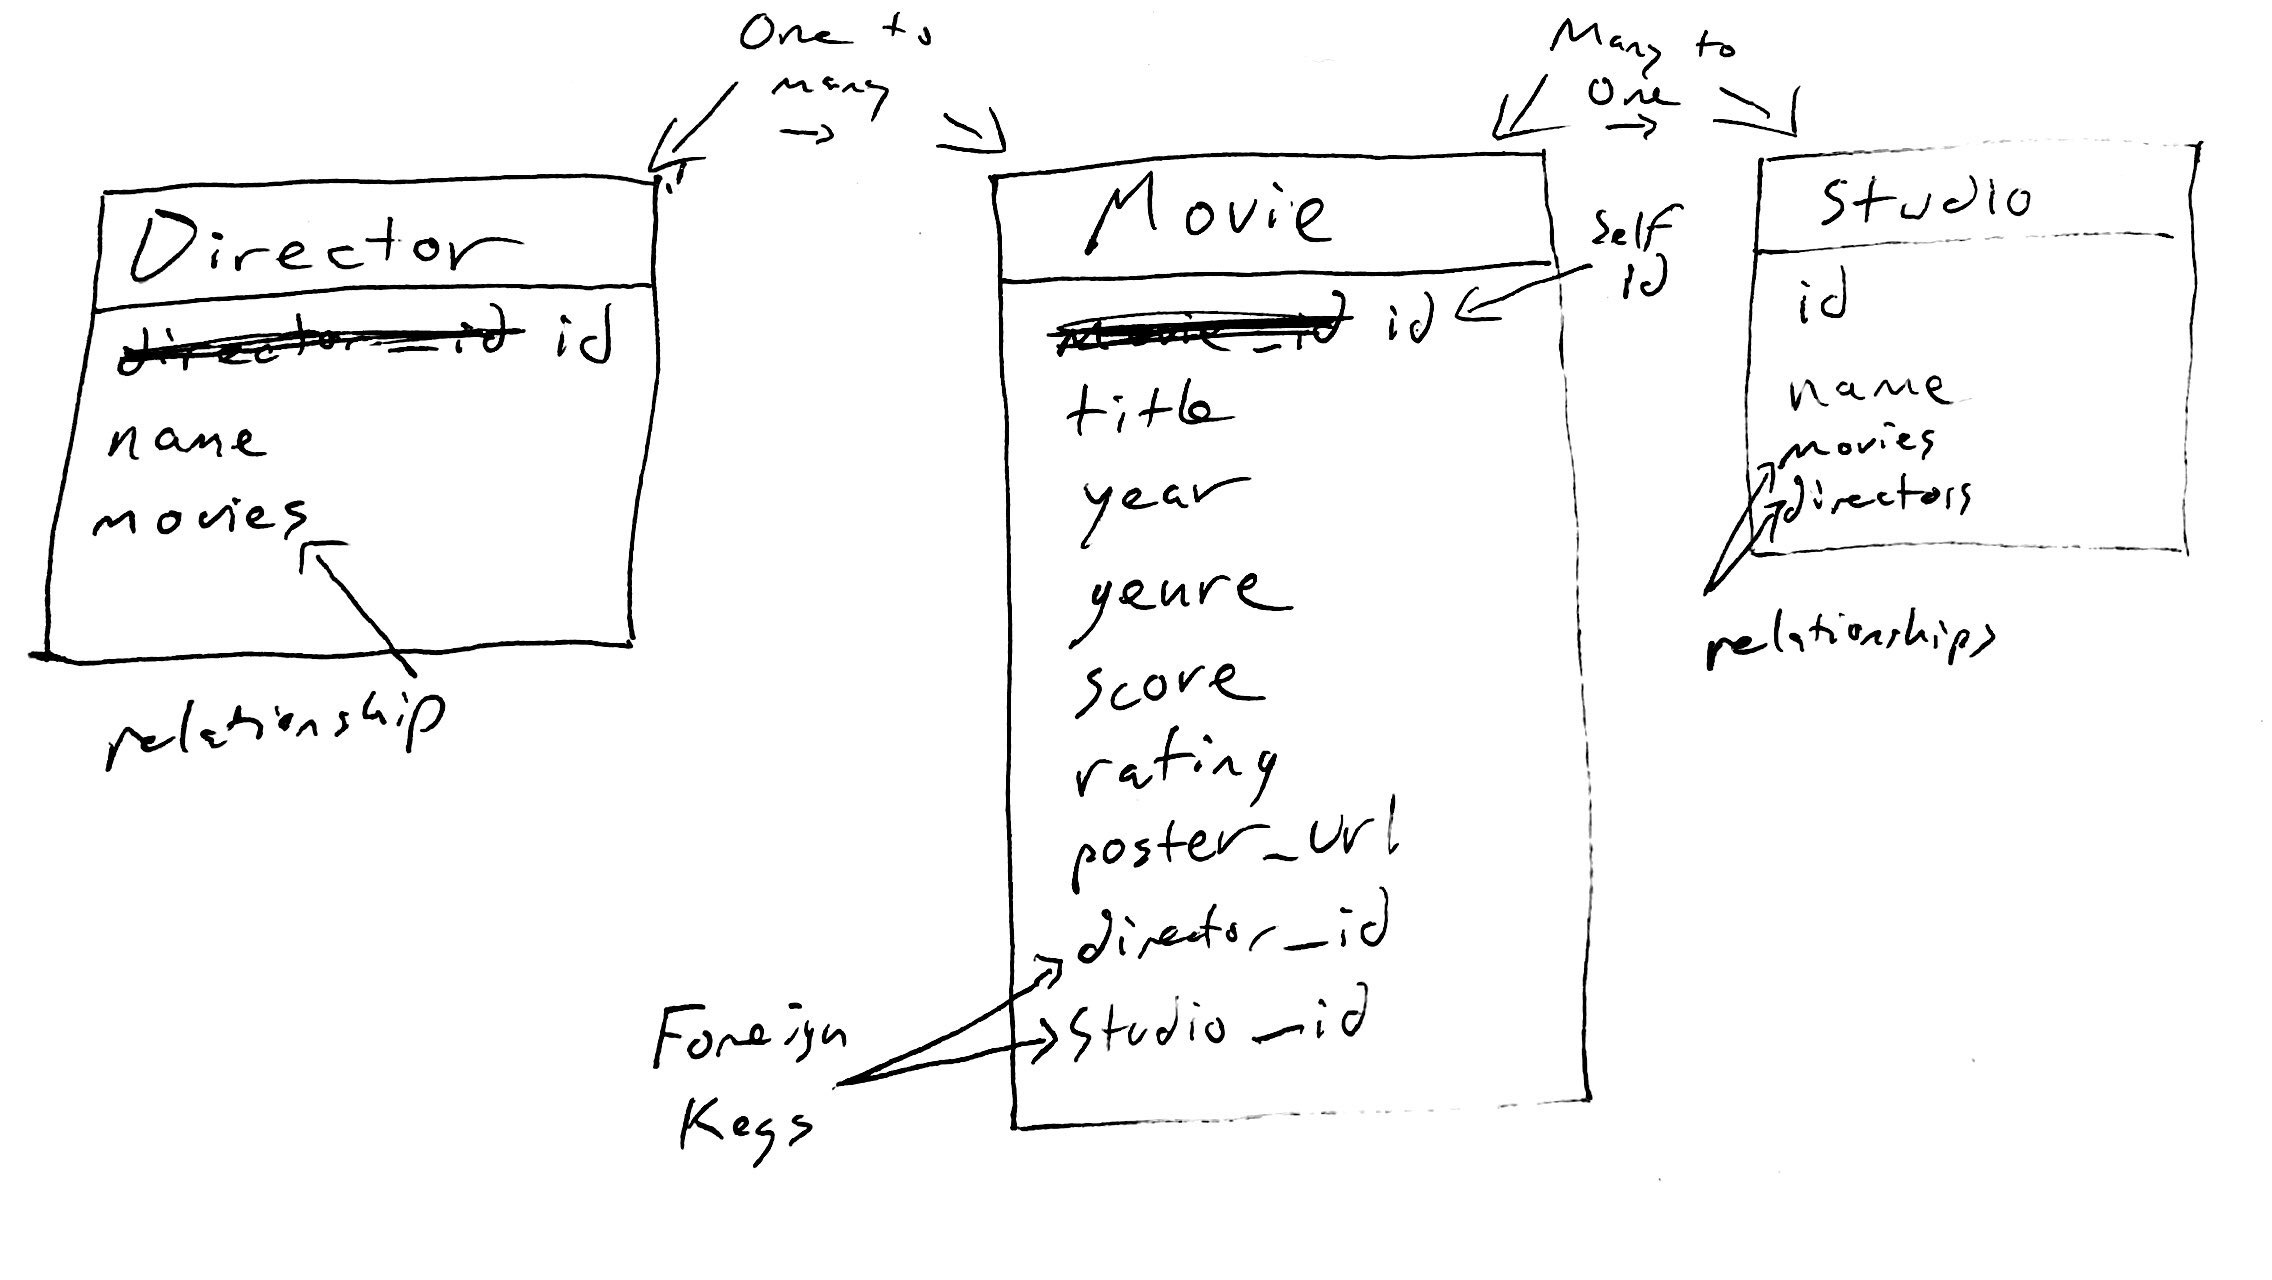 One to
many
→
Many to
One
→
Director
director_id id
name
movies
relationship
Movie
Movie_id id
Self
id
title
year
genre
score
rating
poster_url
director_id
Studio_id
Foreign
Keys
Studio
id
name
movies
directors
relationships